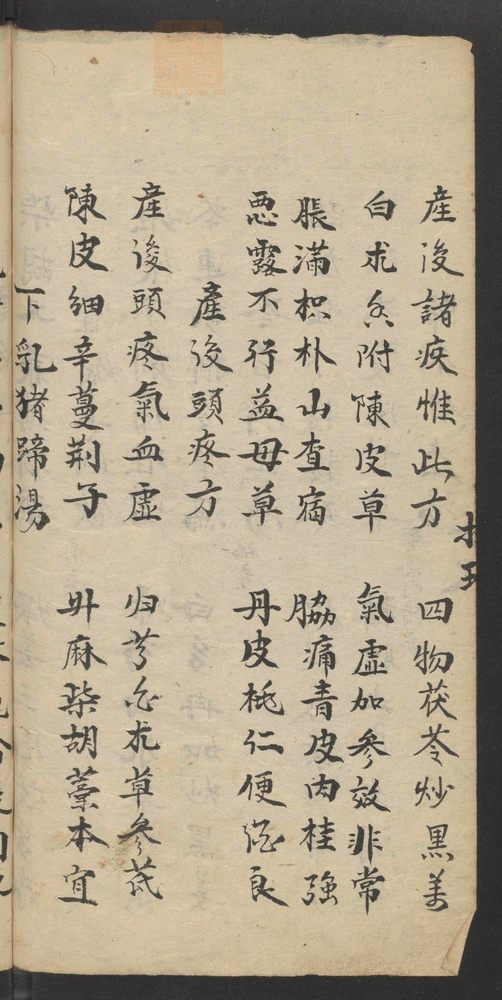 產後諸疾惟此方　四物茯苓炒黑姜
白术香附陳皮草　氣虛加參效非常
脹滿枳朴山查宿　脇痛青皮肉桂強
惡露不行益母草　丹皮桃仁便
產後頭疼方
產後頭疼氣血虛　归芎白朮草參芪
陳皮細辛蔓荆子　升麻柴胡藁本宜
下乳猪蹄湯